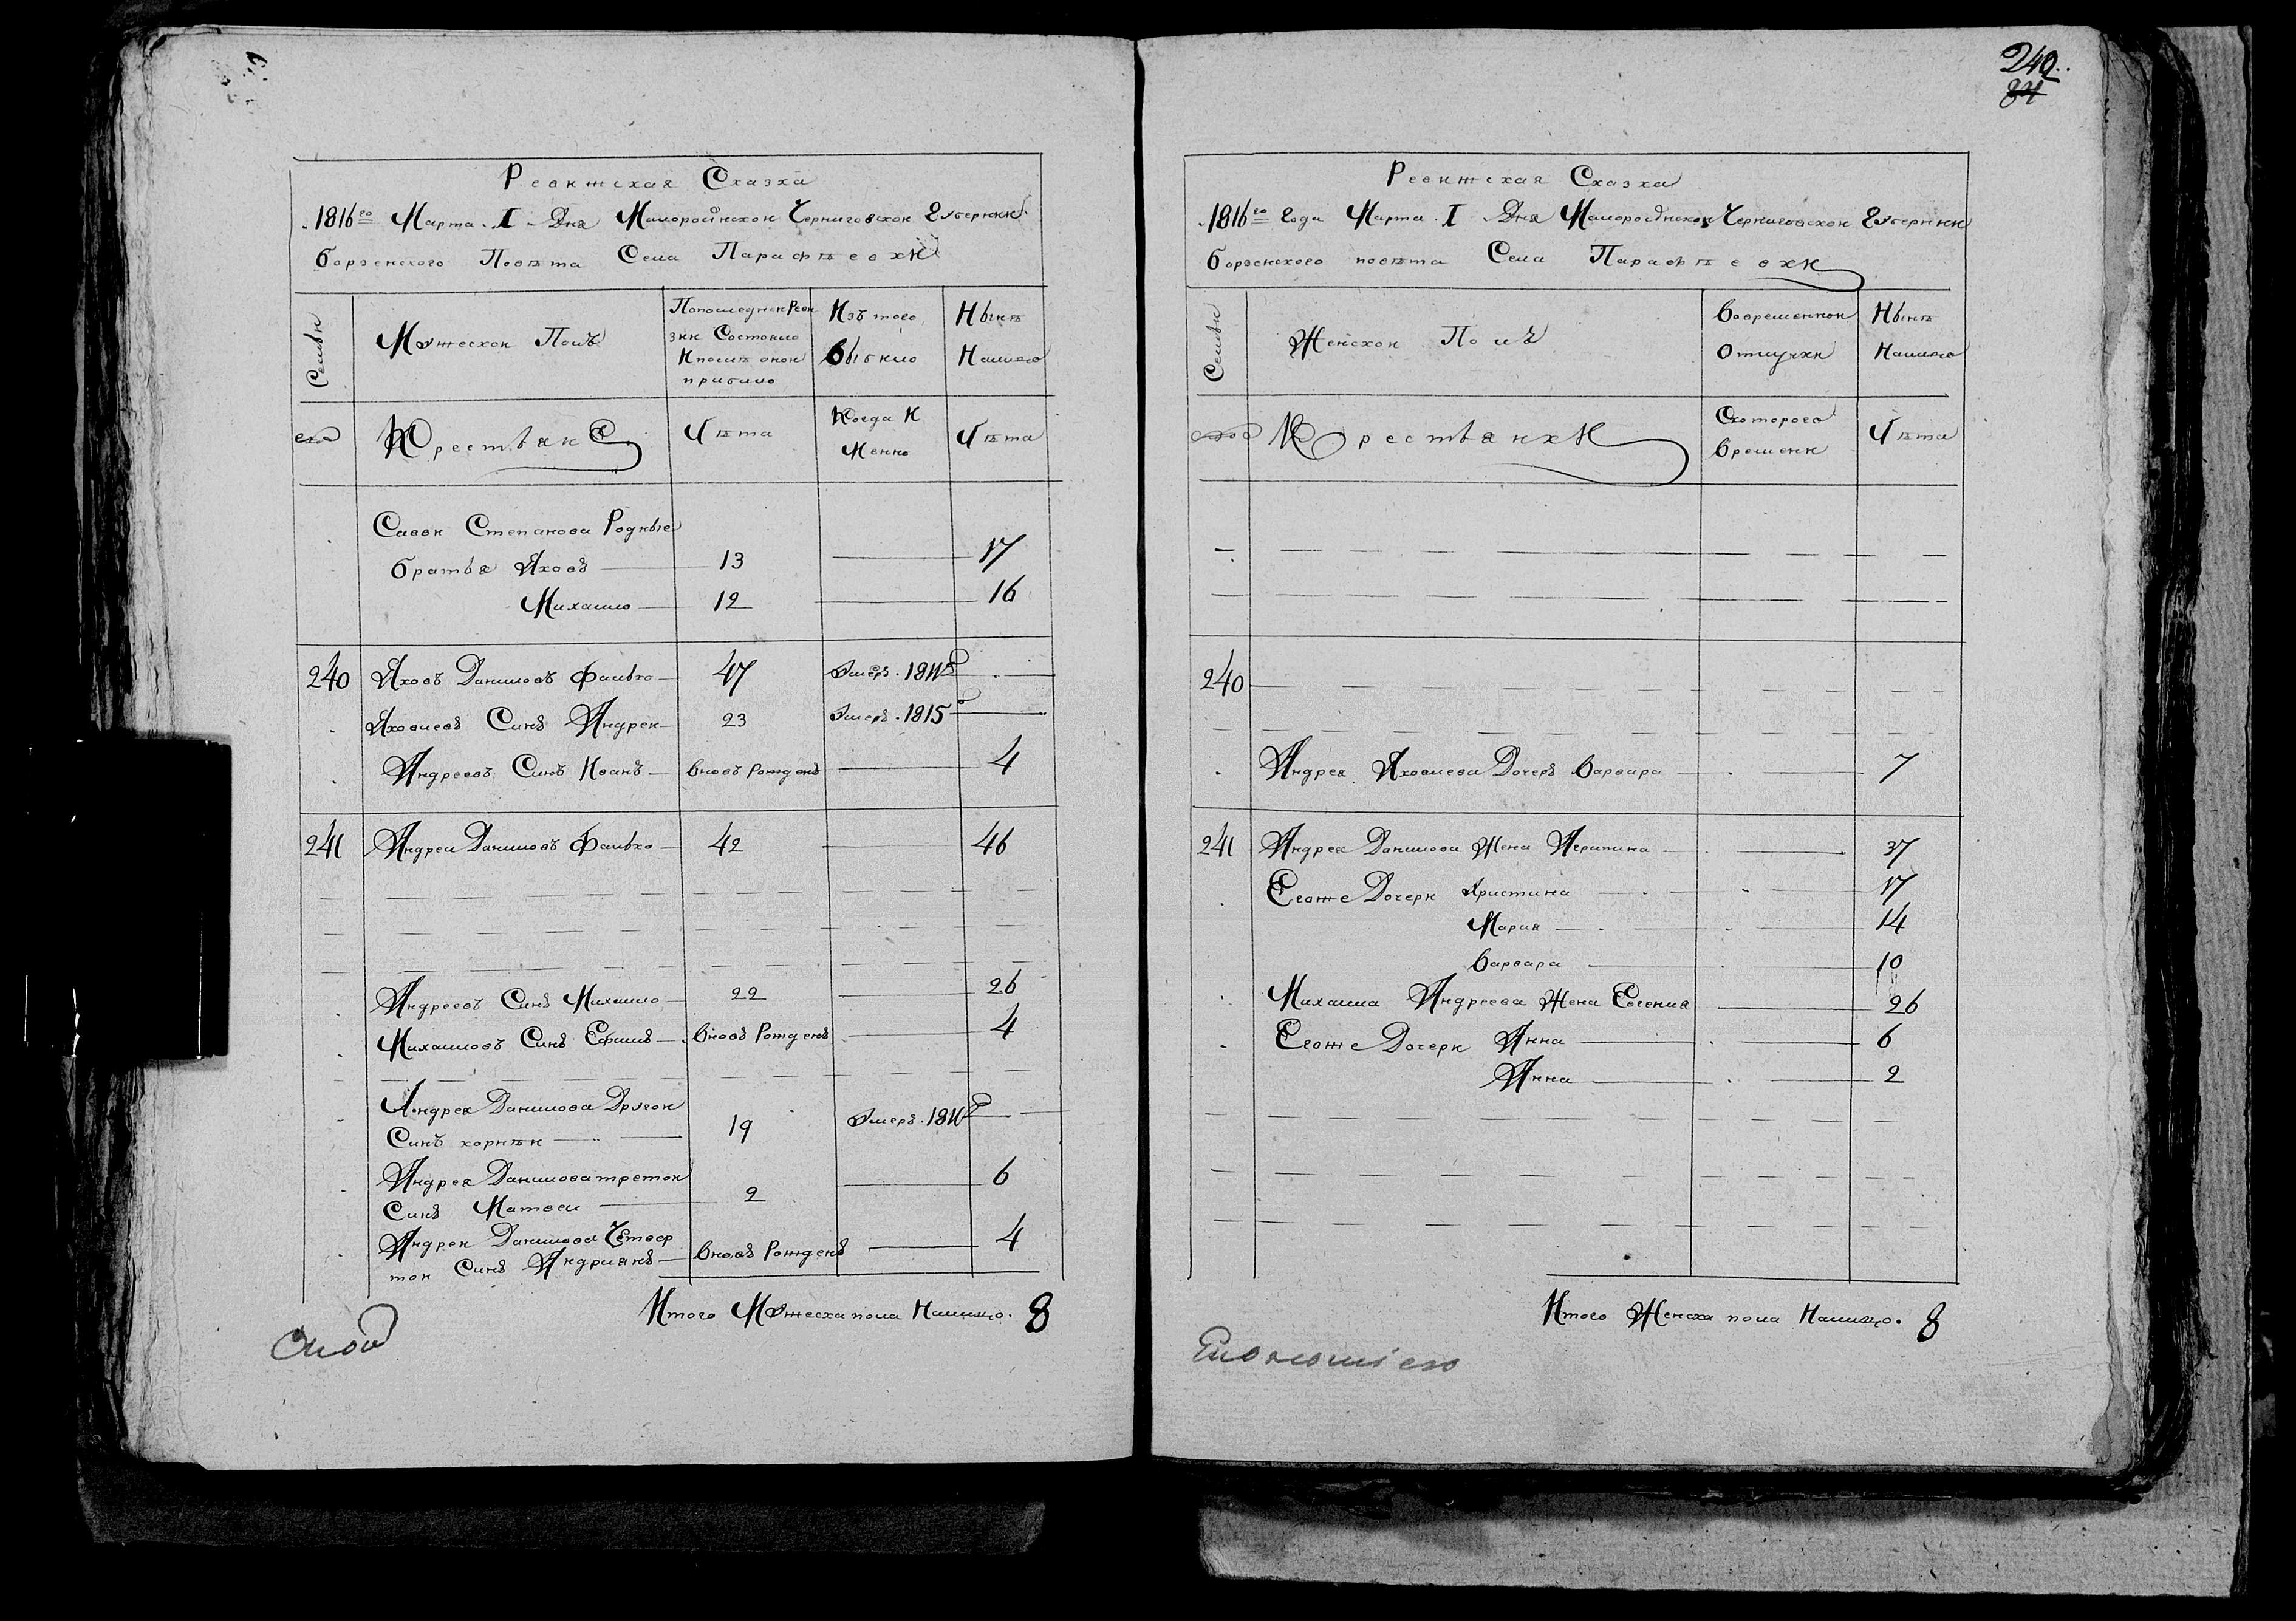 Ревижская Сказка
1816го Марта I Дня Малоросійской Черниговской Губерніи
Борзенского Повѣта Села Парафѣевки
Семьи
Мужеской Полъ
Попоследней Реви
зіи Состояло
И после оной
прибыло
Изъ того
выбыло
Ныне
Налицо
Крестьяне
Лѣта
Когда И
Менно
Лѣта
Савы Степанова Родные
братья Яковъ 13 17
Михаило 12 16
240 Яковъ Даниловъ Фалько 47 Умеръ 1814
Яковлевъ Синъ Андрей 23 Умеръ 1815
Андреевъ Синъ Иванъ вновь Рожденъ 4
241 Андрей Даниловъ Фалько 42 46
Андреевъ Синъ Михаило 22 26
Михаиловъ Синъ Ефимъ вновь Рожденъ 4
Андрея Данилова Другой
Синъ корнѣй 19 Умеръ 1814
Андрея Данилова третой
Синъ Матвей 2 6
Андрея Данилова Четвер
той Синъ Андриянъ вновь Рожденъ 4
Итого Мужеска пола Налицо. 8
240
84
Ревижская Сказка
1816го Года Марта I Дня Малоросійской Черниговской Губерніи
Борзенского повѣта Села Парафѣевки
Семьи
Женской Полъ
Вовременной
Отлучки
Ныне
Налицо
Крестьянки
Скоторого
времени
Лѣта
240
Андрея Яковлева Дочерь Варвара 7
241 Андрея Данилова Жена Агрипина 37
Егоже Дочери Христина 17
Мария 14
Варвара 10
Михаила Андреева Жена Евгения 26
Егоже Дочери Анна 6
Анна 2
Итого Женска пола Налицо. 8